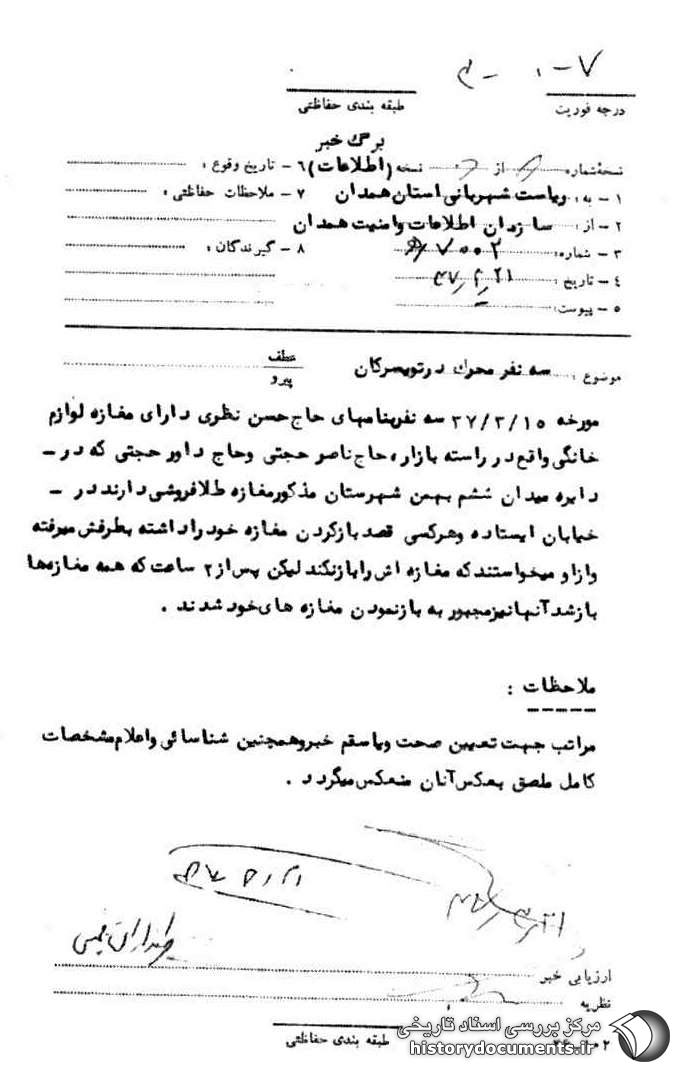 ۷ - ۰۱
درجه فوریت
طبقه بندی حفاظتی
برگ خبر
(اطلاعات)
نسخهٔ شماره از نسخه
۱ - به: ریاست شهربانی استان همدان
۲ - از: سازمان اطلاعات وامنیت همدان
۳ - شماره: ۷۰۰۲
۴ - تاریخ:
۵ - پیوست:
۶ - تاریخ وقوع:
۷ - ملاحظات حفاظتی:
۸ - گیرندگان:
موضوع: سه نفر محرك در تویسرکان
عطف
پیرو
مورخه ۳۷/۳/۱۵ سه نفر بنامهای حاج حسن نظری دارای مغازه لوازم
خانگی واقع در راسته بازار، حاج ناصر حجتی وحاج داور حجتی که در -
دایره میدان ششم بهمن شهرستان مذکور مغازه طلافروشی دارند در -
خیابان ایستاده وهرکسی قصد بازکردن مغازه خود را داشته بطرفش میرفته
وازاو میخواستند که مغازه اش را بازنکند لیکن پس از ۲ ساعت که همه مغازه‌ها
بازشد آنها نیز مجبور به بازنمودن مغازه های خود شدند .
ملاحظات :
مراتب جهت تعیین صحت ویا سقم خبر وهمچنین شناسائی واعلام مشخصات
کامل ملصق بعکس آنان منعکس میگردد .
ارزیابی خبر
نظریه
طبقه بندی حفاظتی
مرکز بررسی اسناد تاریخی
historydocuments.ir